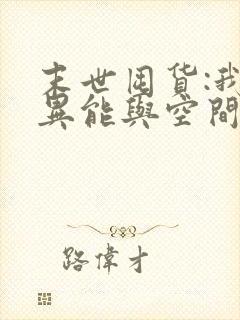 末世囤货:我
異能與空間
路偉才